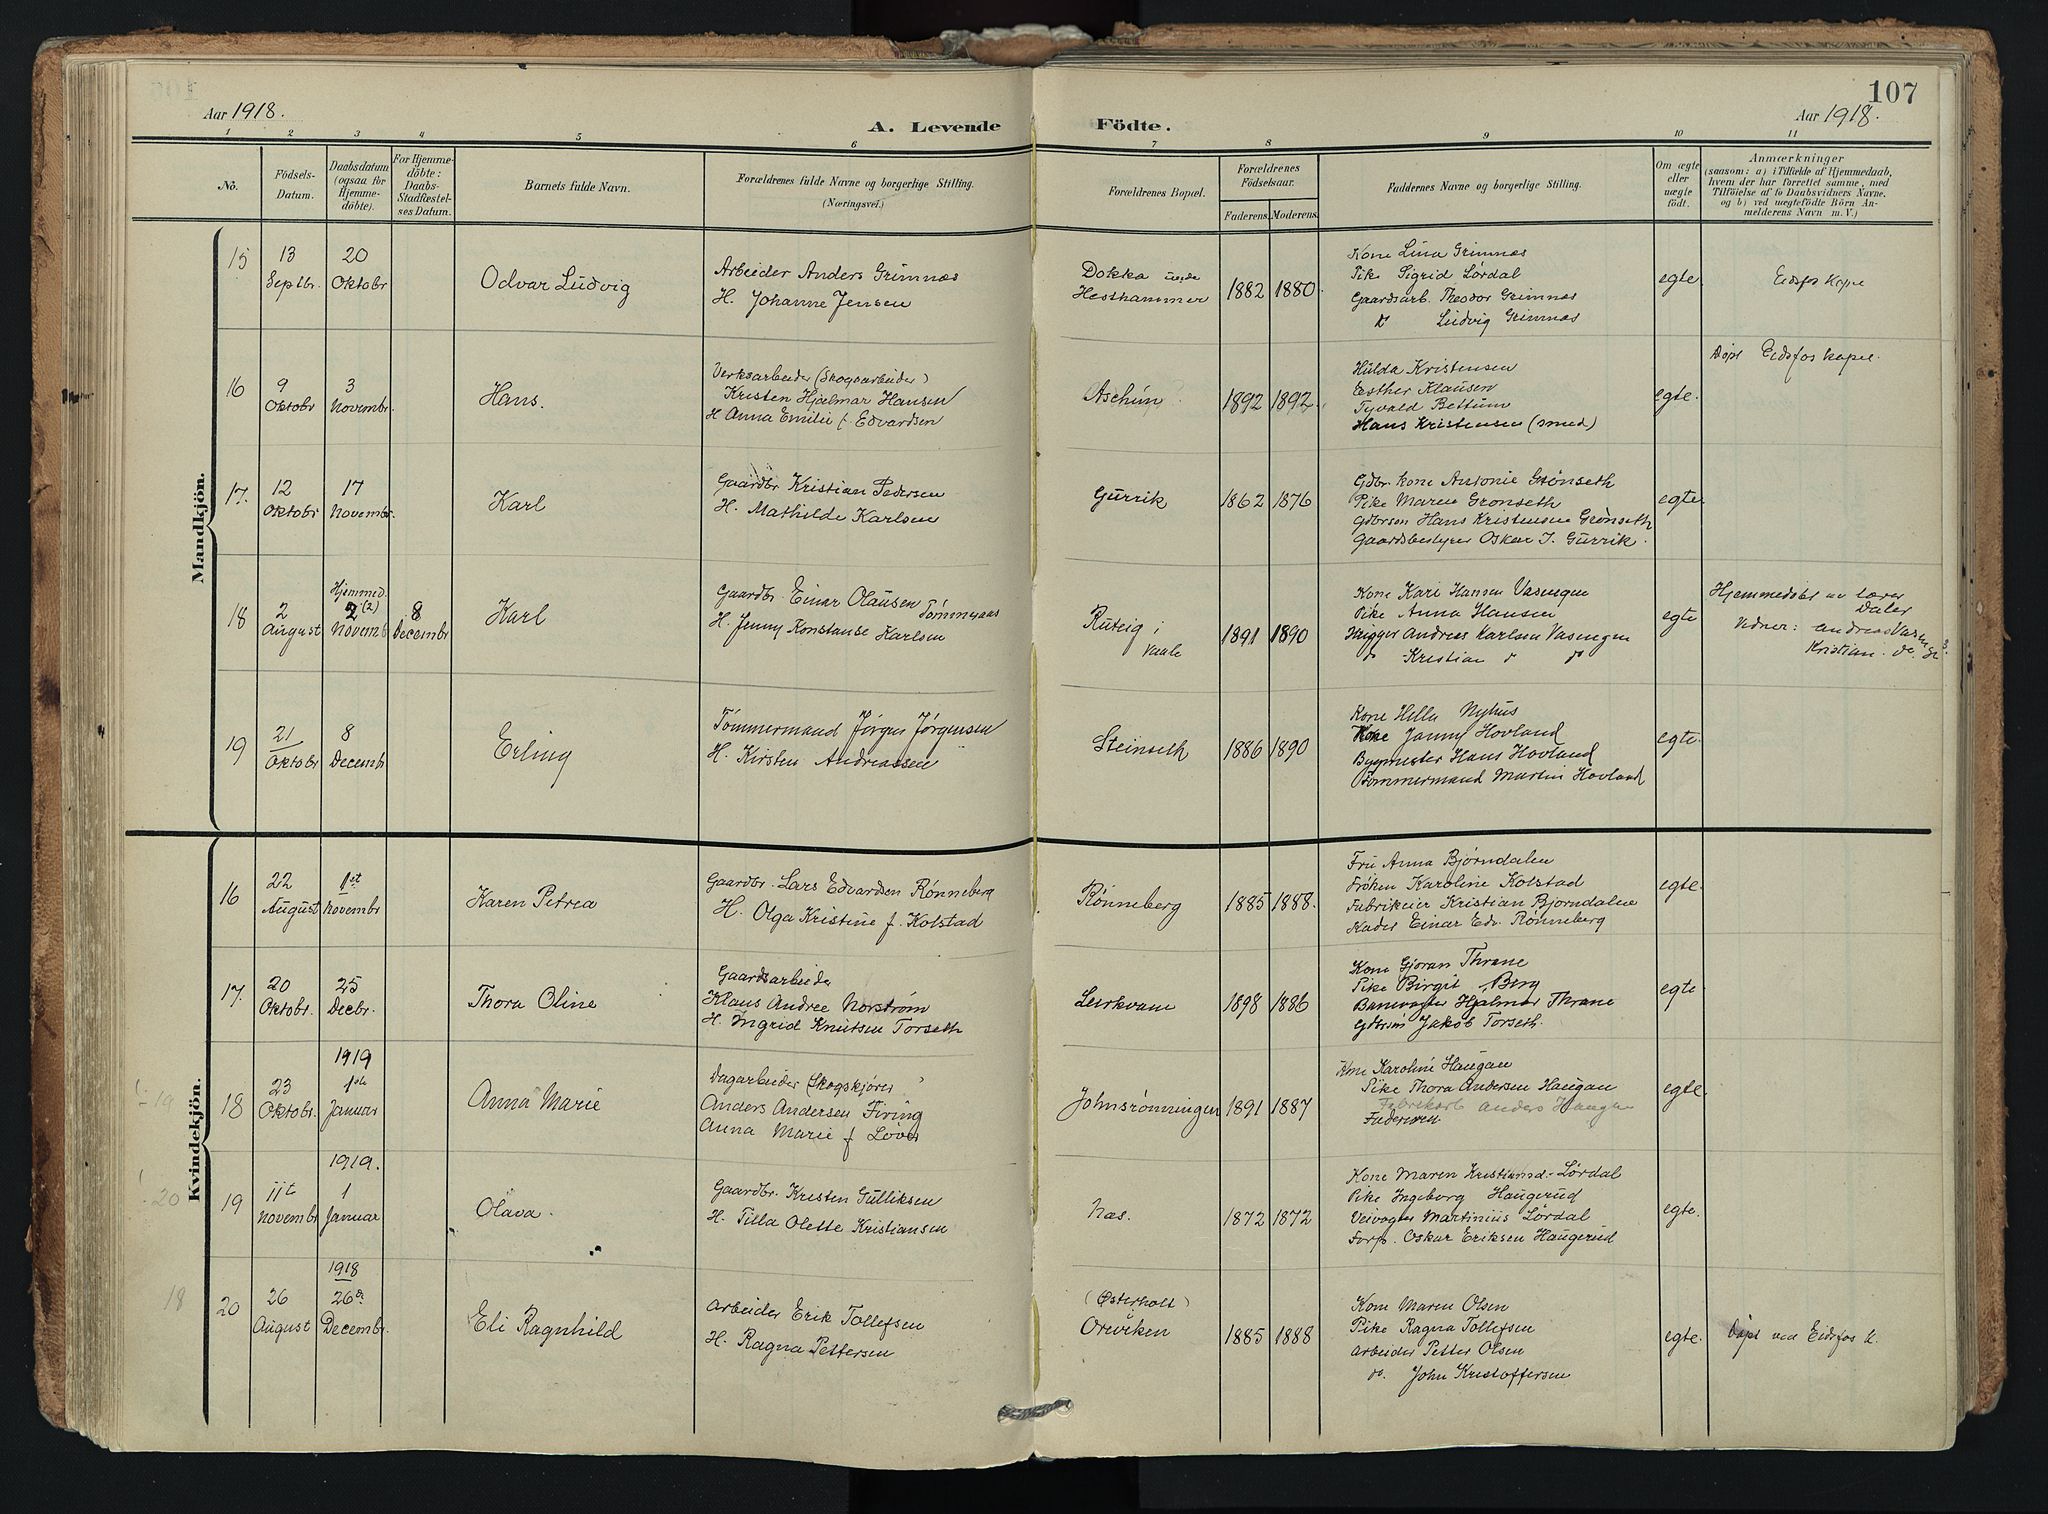 107
Aar 1918.
A. Levende Födte.
Aar 1918.
1 2 3 4 5 6 7 8 9 10 11
No.
Födsels-Datum.
Daabsdatum (ogsaa for Hjemmedöbte).
For Hjemmedöbte: Daabs-Stadfestelses Datum.
Barnets fulde Navn.
Forældrenes fulde Navne og borgerlige Stilling.
(Næringsvei.)
Forældrenes Bopæl.
Forældrenes Födselsaar.
Faderens. Moderens.
Faddernes Navne og borgerlige Stilling.
Om ægte eller uægte födt.
Anmærkninger
(saasom: a) i Tilfælde af Hjemmedaab, hvem der har forrettet samme, med Tilföielse af to Daabsvidners Navne, og b) ved uægtefödte Börn Anmelderens Navn m. V.)
Mandkjön.
15
13 Septbr.
20 Oktobr
Odvar Ludvig
Arbeider Anders Grimnæs
H. Johanne Jensen
Dokka
Hesthammer
1882 1880
Kone Lina Grimnæs
Pike Sigrid Lørdal
Gaardsarb. Theodor Grimnæs
Ludvig Grimnæs
egte
Eidsfos
16
9 Oktobr
3 Novembr.
Hans.
Verksarbeider (Skogsarbeider)
Kristen Hjalmar Hansen
H Anna Emilie f. Edvardsen
Aschim ?
1892 1892
Hulda Kristensen
Esther Klausen
Tyvald Bettum
Hans Kristensen (smed)
egte.
Døpt Eidsfos kapel.
17.
12 Oktobr
17 Novembr.
Karl
Gaardbr Kristian Pedersen
H. Mathilde Karlsen
Gurrik
1862 1876
Gdbr. kone Antonie Grønseth
Pike Maren Gronseth
Gdbrsøn Hans Kristensen Grønseth
Gaardsbestyrer Oskar J. Gurrik.
egte
18
2 August
Hjemmed.
2 (2) Novemb
8 Decembr
Karl
Gaardbr. Einar Olausen Tømmeraas
H. Jenny Konstanse Karlsen
Ruteig i
Vaale
1891 1890
Kone Kari Hansen Vasengen
Pike Anna Hansen
Hugger Andreas Karlsen Vasengen
do Kristian do do
egte
Hjemmedøbt av lærer
Daler
Vidner: Andreas
Kristian do
19
21 Oktobr
8 Decembr
Erling
Tømmermand Jørgen Jørgensen
H. Kirsten Andreassen
Steinseth
1886 1890
Kone Hella Nyhus
Kone Janny Hovland
Bygmester Hans Hovland
Tømmermand Martin Hovland
egte.
Kvindekjön.
16
22 August
1ste Novembr
Karen Petrea
Gaardbr. Lars Edvardsen Rønneberg
H. Olga Kristine f. Kolstad
Rønneberg
1885 1888.
Fru Anna Bjørndalen
Frøken Karoline Kolstad
Fabrikeier Kristian Bjorndalen
Einar Edv. Rønneberg
egte.
17.
20 Oktobr.
25 Decbr.
Thora Oline
Gaardsarbeider
Klaus Andree Norstrøm
H. Ingrid Knutsen Torseth
Leirkvam
1898 1886
Kone Gjøran Thrane
Pike Birgit Berg
Banevogter Hjalmar Thrane
Gdbrsøn Jakob Torseth.
egte
19
18
23 Oktobr.
1919
1ste Januar
Anna Marie
Dagarbeider (Skogskjører)
Anders Andersen Firing
Anna Marie f Løver
Johnsrønningen
1891 1887
Kone Karoline Haugan
Pike Thora Andersen Haugan
Fabrikarb Anders Haugen
Faderen
egte.
20
19
11te Novembr
1919.
1 Januar
Olava.
Gaardbr. Kristen Gulliksen
H. Tilla Olette Kristiansen
Næs.
1872 1872
Kone Maren Kristians.- Lørdal
Pike Ingeborg Haugerud
Veivogter Martinius Lørdal
Forp. Oskar Eriksen Haugerud
egte.
18
20
26 August
1918
26de Decembr.
Eli Ragnhild
Arbeider Erik Tollefsen
H. Ragna Pettersen
(Østerholt)
Oreviken
1885 1888
Kone Maren Olsen
Pike Ragna Tollefsen
Arbeider Petter Olsen
do. John Kristoffersen
egte.
Døpt ved Eidsfos k.